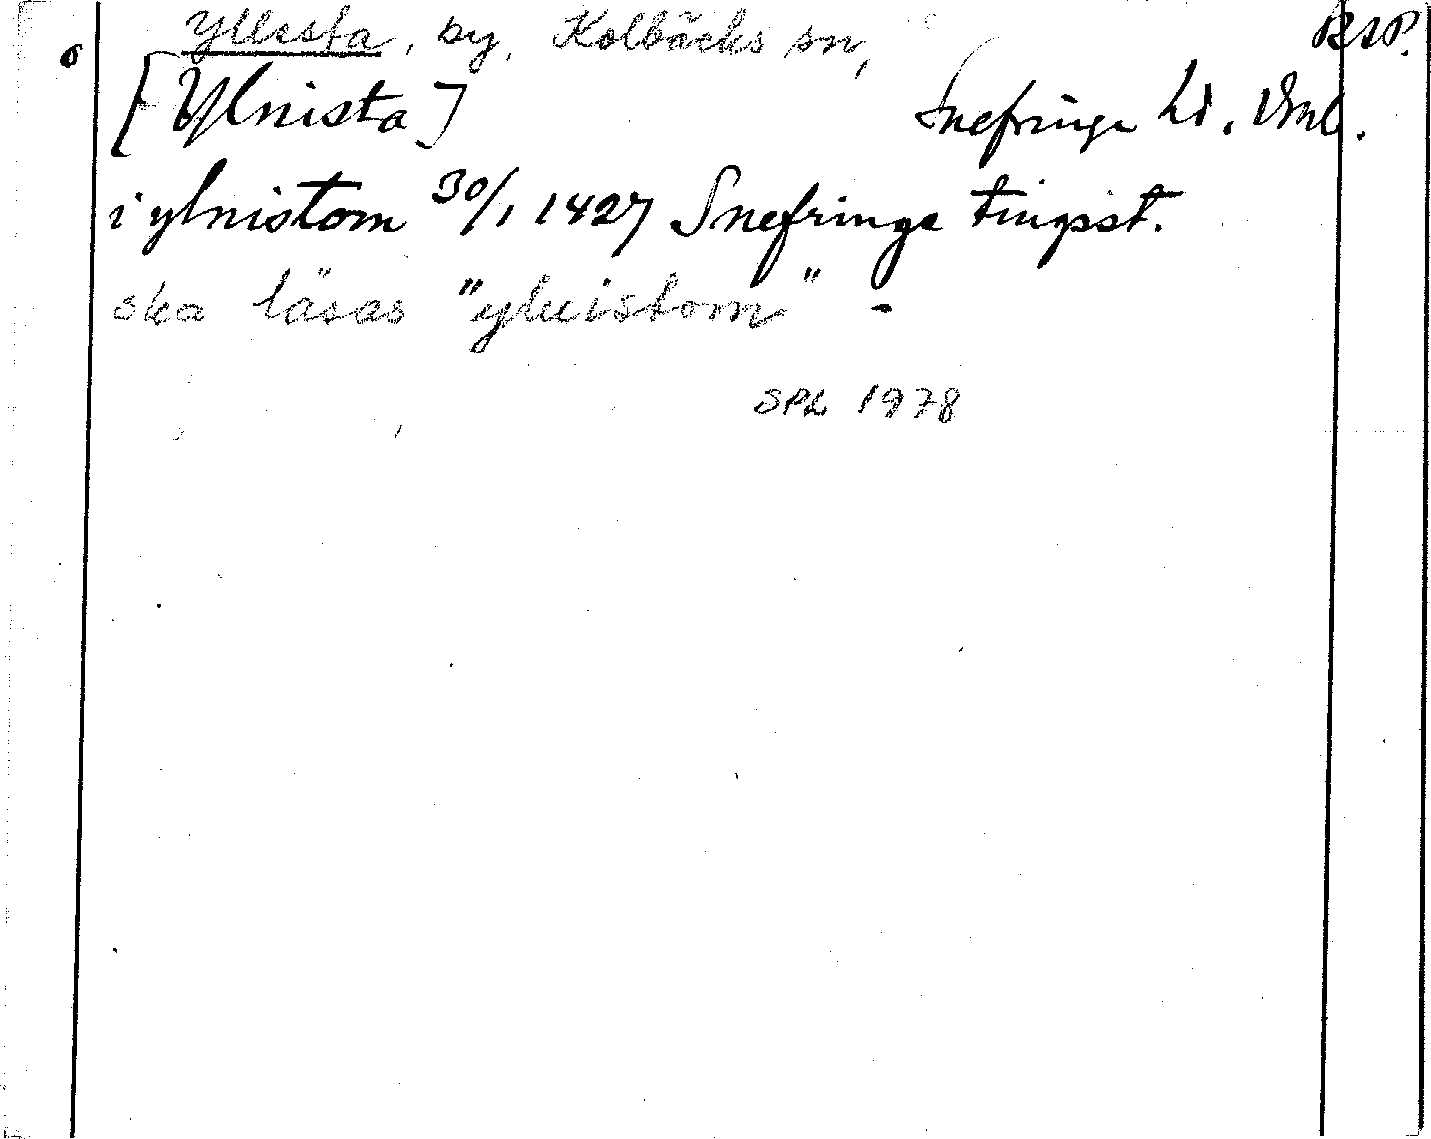 Yllesta, by, Kolbäcks sn,
[Ylnista] Snefringe hd. Vml.
i ylnistom 30/1 1427 Snefringe tingsst.
ska läsas "yluistom" -
SPL 1978